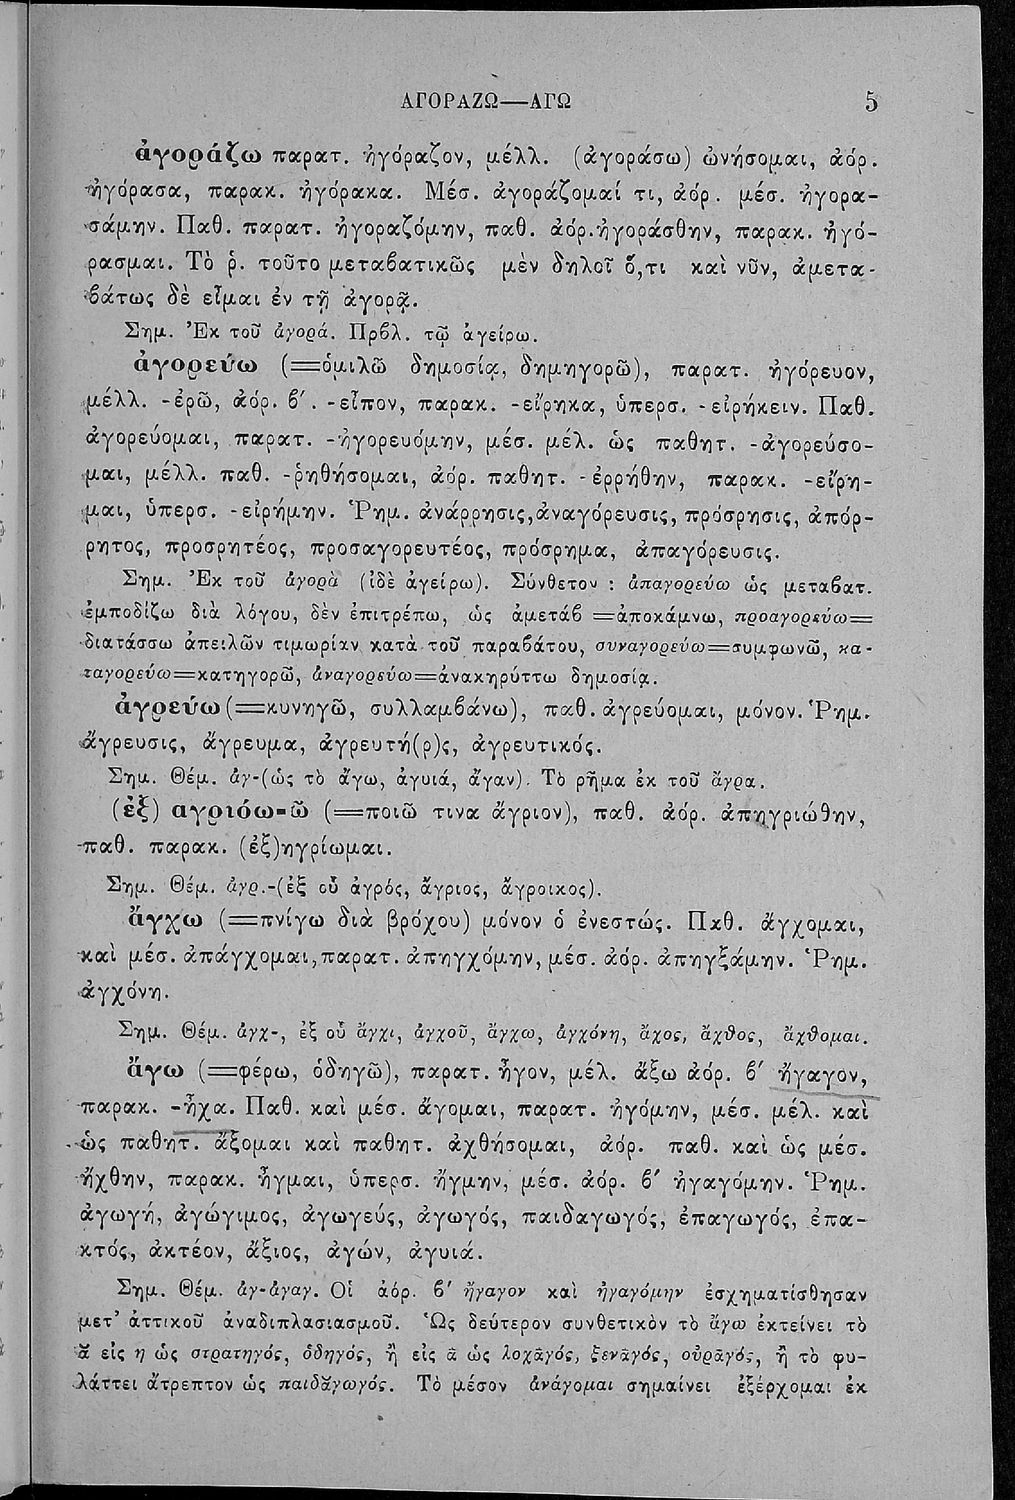 ΑΓΟΡΑΖΩ—ΑΓΩ 5
ἀγοράζω παρατ. ἠγόραζον, μέλλ. (ἀγοράσω) ὠνήσομαι, ἀόρ.
ἠγόρασα, παρακ. ἠγόρακα. Μέσ. ἀγοράζομαί τι, ἀόρ. μέσ. ἠγορα-
σάμην. Παθ. παρατ. ἠγοραζόμην, παθ. ἀόρ. ἠγοράσθην, παρακ. ἠγό-
ρασμαι. Τὸ ῥ. τοῦτο μεταβατικῶς μὲν δηλοῖ ὅ,τι καὶ νῦν, ἀμετα-
βάτως δὲ εἶμαι ἐν τῇ ἀγορᾷ.
Σημ. Ἐκ τοῦ ἀγορά. Πρβλ. τῷ ἀγείρω.
ἀγορεύω (=ὁμιλῶ δημοσίᾳ, δημηγορῶ), παρατ. ἠγόρευον,
μέλλ. -ἐρῶ, ἀόρ. β´. -εἶπον, παρακ. -εἴρηκα, ὑπερσ. -εἰρήκειν. Παθ.
ἀγορεύομαι, παρατ. -ἠγορευόμην, μέσ. μέλ. ὡς παθητ. -ἀγορεύσο-
μαι, μέλλ. παθ. -ῥηθήσομαι, ἀόρ. παθητ. -ἐρρήθην, παρακ. -εἴρη-
μαι, ὑπερσ. -εἰρήμην. Ῥημ. ἀνάρρησις, ἀναγόρευσις, πρόσρησις, ἀπόρ-
ρητος, προσρητέος, προσαγορευτέος, πρόσρημα, ἀπαγόρευσις.
Σημ. Ἐκ τοῦ ἀγορὰ (ἰδὲ ἀγείρω). Σύνθετον : ἀπαγορεύω ὡς μεταβατ.
ἐμποδίζω διὰ λόγου, δὲν ἐπιτρέπω, ὡς ἀμετάβ =ἀποκάμνω, προαγορεύω=
διατάσσω ἀπειλῶν τιμωρίαν κατὰ τοῦ παραβάτου, συναγορεύω=συμφωνῶ, κα-
ταγορεύω=κατηγορῶ, ἀναγορεύω=ἀνακηρύττω δημοσίᾳ.
ἀγρεύω (=κυνηγῶ, συλλαμβάνω), παθ. ἀγρεύομαι, μόνον. Ῥημ.
ἄγρευσις, ἄγρευμα, ἀγρευτή(ρ)ς, ἀγρευτικός.
Σημ. Θέμ. ἀγ-(ὡς τὸ ἄγω, ἀγυιά, ἄγαν). Τὸ ρῆμα ἐκ τοῦ ἄγρα.
(ἐξ) αγριόω-ῶ (=ποιῶ τινα ἄγριον), παθ. ἀόρ. ἀπηγριώθην,
παθ. παρακ. (ἐξ)ηγρίωμαι.
Σημ. Θέμ. ἀγρ.-(ἐξ οὗ ἀγρός, ἄγριος, ἄγροικος).
ἄγχω (=πνίγω διὰ βρόχου) μόνον ὁ ἐνεστώς. Παθ. ἄγχομαι,
καὶ μέσ. ἀπάγχομαι, παρατ. ἀπηγχόμην, μέσ. ἀόρ. ἀπηγξάμην. Ῥημ.
ἀγχόνη.
Σημ. Θέμ. ἀγχ-, ἐξ οὗ ἄγχι, ἀγχοῦ, ἄγχω, ἀγχόνη, ἄχος, ἄχθος, ἄχθομαι.
ἄγω (=φέρω, ὁδηγῶ), παρατ. ἦγον, μέλ. ἄξω ἀόρ. β´ ἤγαγον,
παρακ. -ἦχα. Παθ. καὶ μέσ. ἄγομαι, παρατ. ἠγόμην, μέσ. μέλ. καὶ
ὡς παθητ. ἄξομαι καὶ παθητ. ἀχθήσομαι, ἀόρ. παθ. καὶ ὡς μέσ.
ἤχθην, παρακ. ἦγμαι, ὑπερσ. ἤγμην, μέσ. ἀόρ. β´ ἠγαγόμην. Ῥημ.
ἀγωγή, ἀγώγιμος, ἀγωγεύς, ἀγωγός, παιδαγωγός, ἐπαγωγός, ἐπα-
κτός, ἀκτέον, ἄξιος, ἀγών, ἀγυιά.
Σημ. Θέμ. ἀγ-ἀγαγ. Οἱ ἀόρ. β´ ἤγαγον καὶ ἠγαγόμην ἐσχηματίσθησαν
μετ᾿ ἀττικοῦ ἀναδιπλασιασμοῦ. Ὡς δεύτερον συνθετικὸν τὸ ἄγω ἐκτείνει τὸ
ᾰ εἰς η ὡς στρατηγός, ὁδηγός, ἢ εἰς ᾱ ὡς λοχᾱγός, ξενᾱγός, οὐρᾱγός, ἢ τὸ φυ-
λάττει ἄτρεπτον ὡς παιδᾰγωγός. Τὸ μέσον ἀνάγομαι σημαίνει ἐξέρχομαι ἐκ